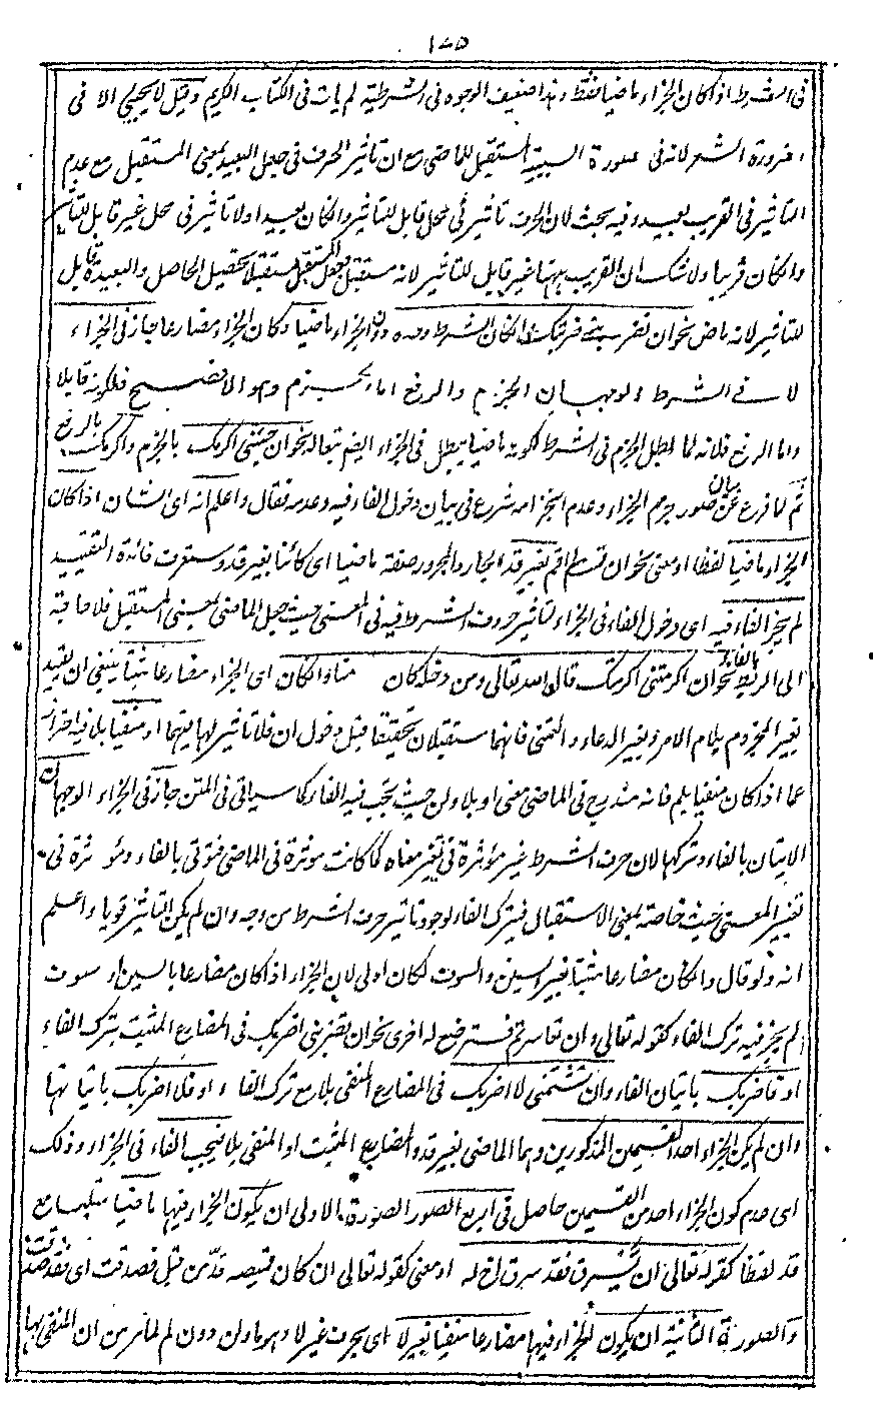 ١٨٥
فى الشرط اذا كان الجزاء ماضيا فقط وهذا ضعيف الوجوه فى الشرطية لم يات فى الكتاب الكريم وقيل لا يجيئ الا فى
ضرورة الشعر لانه فى صورة السببية استقبل للماضى مع ان تاثير الحرف فى جعل البعيد بمعنى المستقبل مع عدم
التاثير فى القريب بعيد وفيه بحث لان الحرف تاثير فى محل قابل للتاثير والكان بعيدا ولا تاثير فى محل غير قابل للتاثير
والكان قريبا ولا شك ان القريب ههنا غير قابل للتاثير لانه مستقبل فجعل المستقبل مستقبلا تحصيل الحاصل والبعيد قابل
للتاثير لانه ماض نحو ان تضربنى ضربتك والكان الشرط وحده دون الجزاء ماضيا وكان الجزاء مضارعا جاز فى الجزاء
لا فى الشرط الوجهان الجزم والرفع اما الجزم وهو الافصح فلكونه قابلا
واما الرفع فلانه لما بطل الجزم فى الشرط لكونه ماضيا يبطل فى الجزاء ايضا تبعا له نحو ان جئتنى اكرمك بالجزم واكرمك بالرفع
ثم لما فرغ عن بيان صور جزم الجزاء وعدم انجزامه شرع فى بيان دخول الفاء فيه وعدمه فقال واعلم انه اى الشان اذا كان
الجزاء ماضيا لفظا او معنى نحو ان قمت لم اقم بغير قد الجار والمجرور صفة ماضيا اى كائنا بغير قد وستعرف فائدة التقييد
لم يجز الفاء فيه اى دخول الفاء فى الجزاء لتاثير حروف الشرط فيه فى المعنى حيث جعل الماضى بمعنى المستقبل فلا حاجة
الى الربط بالفاء نحو ان اكرمتنى اكرمتك قال الله تعالى ومن دخله كان امنا والكان اى الجزاء مضارعا مثبتا ينبغى ان يقيد
بغير المجزوم بلام الامر وبغير الدعاء والتمنى فانهما مستقبلان تحقيقا قبل دخول ان فلا تاثير لها فيهما او منفيا بلا فيه احتراز
عما اذا كان منفيا بلم فانه مندرج فى الماضى معنى او بلا ولن حيث يجب فيه الفاء كما سياتى فى المتن جاز فى الجزاء الوجهان
الاتيان بالفاء وتركها لان حرف الشرط غير مؤثرة فى تغير معناه كما كانت موثرة فى الماضى فتوتى بالفاء ومؤثرة فى
تغيير المعنى حيث خاصته لمعنى الاستقبال فيترك الفاء لوجود تاثير حرف الشرط من وجه وان لم يكن التاثير قويا واعلم
انه ولو قال والكان مضارعا مثبتا بغير السين والسوف لكان اولى لان الجزاء اذا كان مضارعا بالسين او سوف
لم يجز فيه ترك الفاء كقوله تعالى وان تعاسرتم فسترضع له اخرى نحو ان تضربنى اضربك فى المضارع المثبت بترك الفاء
او فاضربك باتيان الفاء وان تشتمنى لا اضربك فى المضارع المنفى بلا مع ترك الفاء او فلا اضربك باتيانها
وان لم يكن الجزاء احد القسمين المذكورين وهما الماضى بغير قد والمضارع المثبت او المنفى بلا فيجب الفاء فى الجزاء وذلك
اى عدم كون الجزاء احد من القسمين حاصل فى اربع الصور الصورة الاولى ان يكون الجزاء فيها ماضيا متلبسا مع
قد لفظا كقوله تعالى ان يسرق فقد سرق اخ له او معنى كقوله تعالى ان كان قميصه قد من قبل فصدقت اى فقد صدقت
والصورة الثانية ان يكون الجزاء فيها مضارعا منفيا بغير لا اى بحرف غير لا وهو ما ولن دون لم لما مر من ان المنفى بها